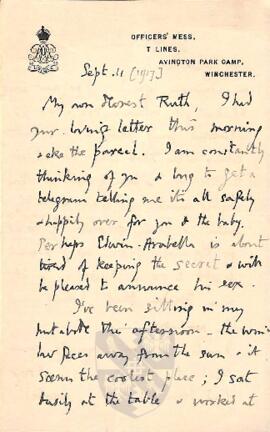 OFFICERS' MESS,
T LINES,
AVINGTON PARK CAMP,
WINCHESTER.
Sept. 11 [1917]
My own dearest Ruth, I had
your loving letter this morning
& the parcel. I am constantly
thinking of you & long to get a
telegram telling me it's all safely
& happily over for you & the baby.
Perhaps Edwin-Arabella is about
tired of keeping the secret & will
be pleased to announce his sex.
I've been sitting in my
hut all the afternoon – the
has faces away from the sun & it
seems the coolest place; I sat
busily at the table & worked at